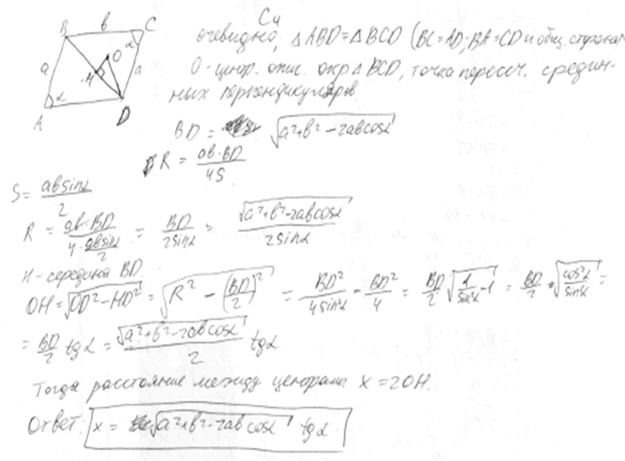 C4
B b C
O
a H a
α
A D
очевидно, △ABD = △BCD (BC = AD; BA = CD и общ. сторона
O - центр. опис. окр △ BCD, точка пересеч. средин-
ных перпендикуляров.
BD = √(a²+b² - 2abcosα)
R = ab·BD / 4S
S = absinα / 2
R = ab·BD / (4·absinα/2) = BD / 2sinα = √(a²+b²-2abcosα) / 2sinα
H - середина BD.
OH = √(OD² - HD²) = √(R² - (BD/2)²) = BD²/4sin²α - BD²/4 = BD/2 √(1/sin²α - 1) = BD/2 · √(cos²α/sin²α) =
= BD/2 tgα = √(a²+b²-2abcosα) / 2 tgα
Тогда расстояние между центрами x = 2OH.
Ответ: x = √(a²+b²-2abcosα) tgα